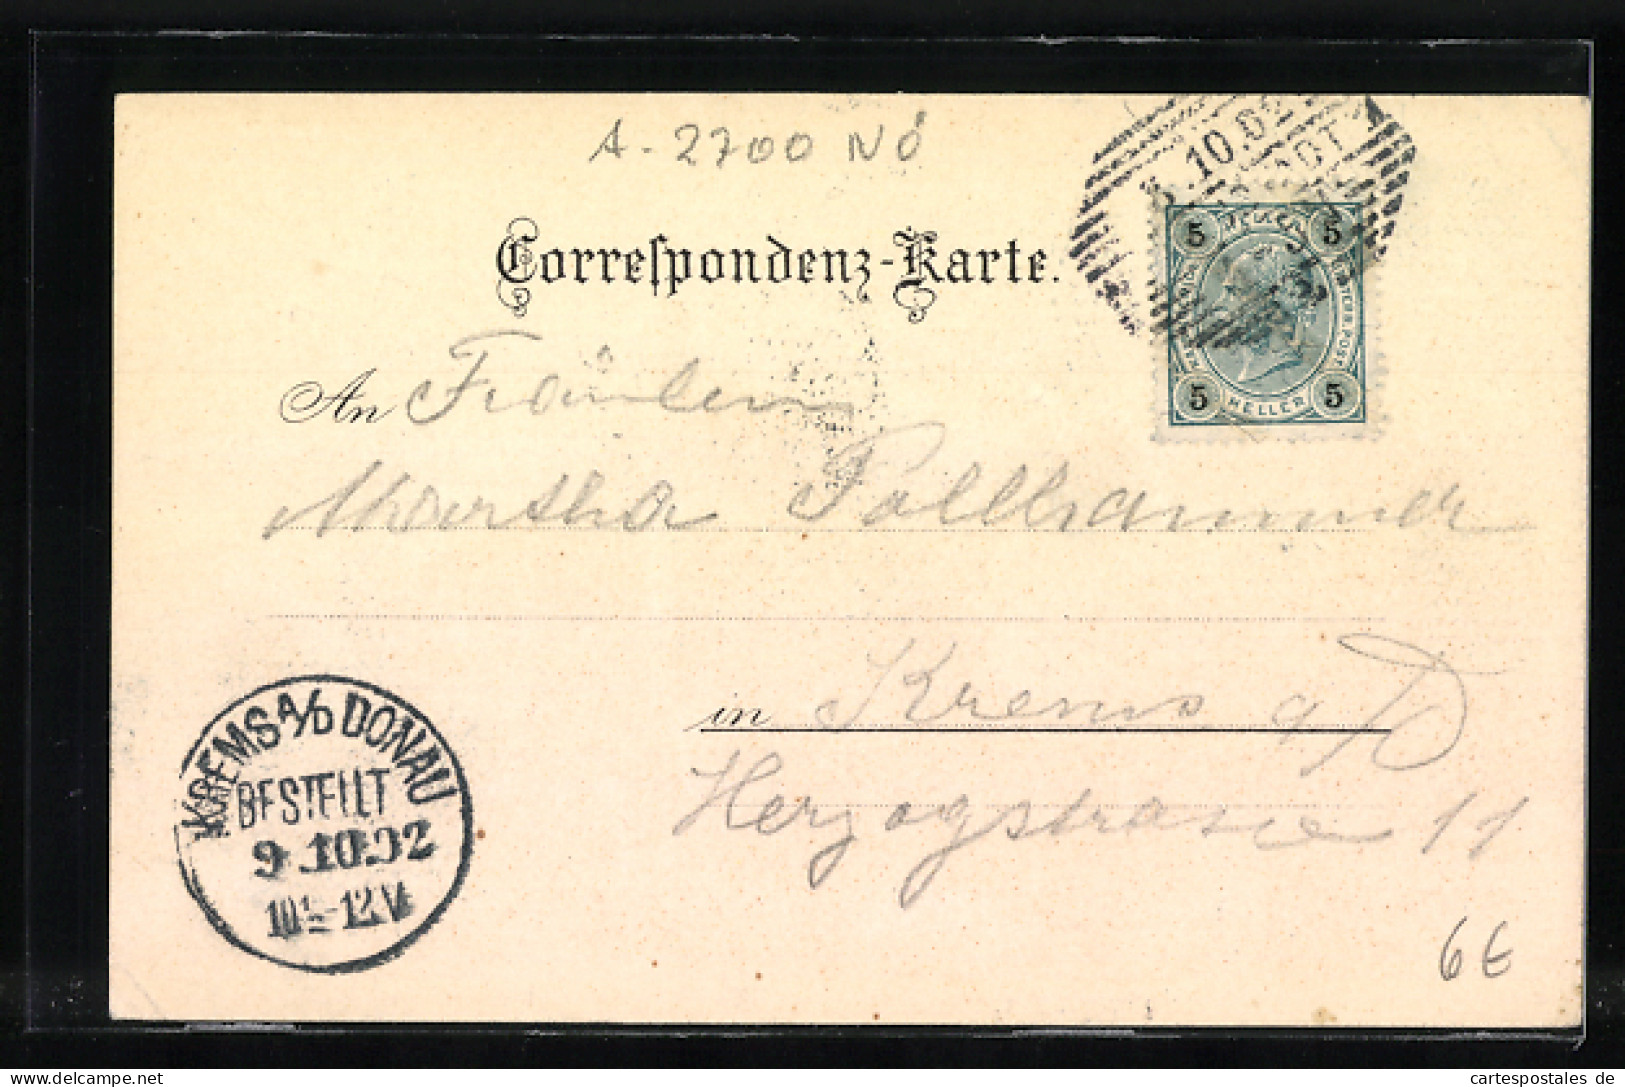 A-2700 NÖ
.10.02
5 5
Correspondenz-Karte.
An Fräulein
5 HELLER 5
Martha Pollhammer
in Krems a/D
Herzogstrasse 11
KREMS A/D DONAU
BESTELLT
9.10.02
10½-12.V
6€
cartespostales de